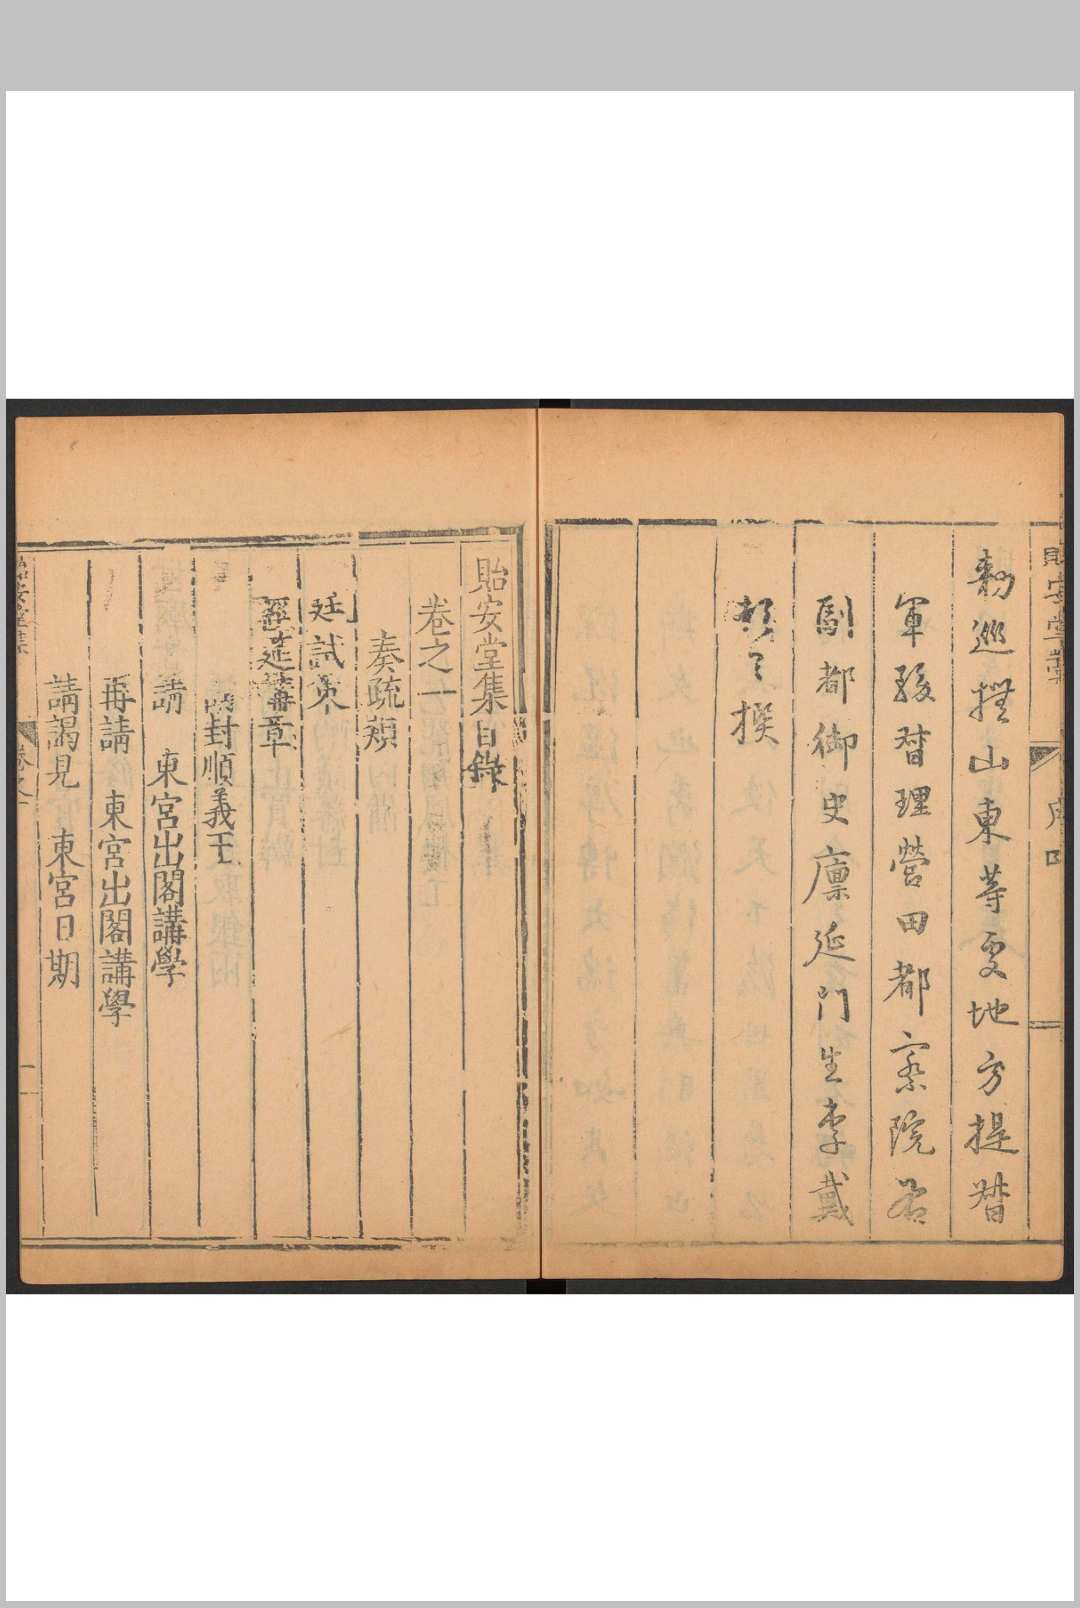 貽安堂集
序 四
勑巡撫山東等處地方提督
軍務督理營田都察院右
副都御史廩延門生李戴
頓首撰
貽安堂集目錄
卷之一
奏疏類
廷試策
經筵講章
請封順義王
請　東宮出閣講學
再請　東宮出閣講學
請謁見　東宮日期
貽安堂集
卷之一
一